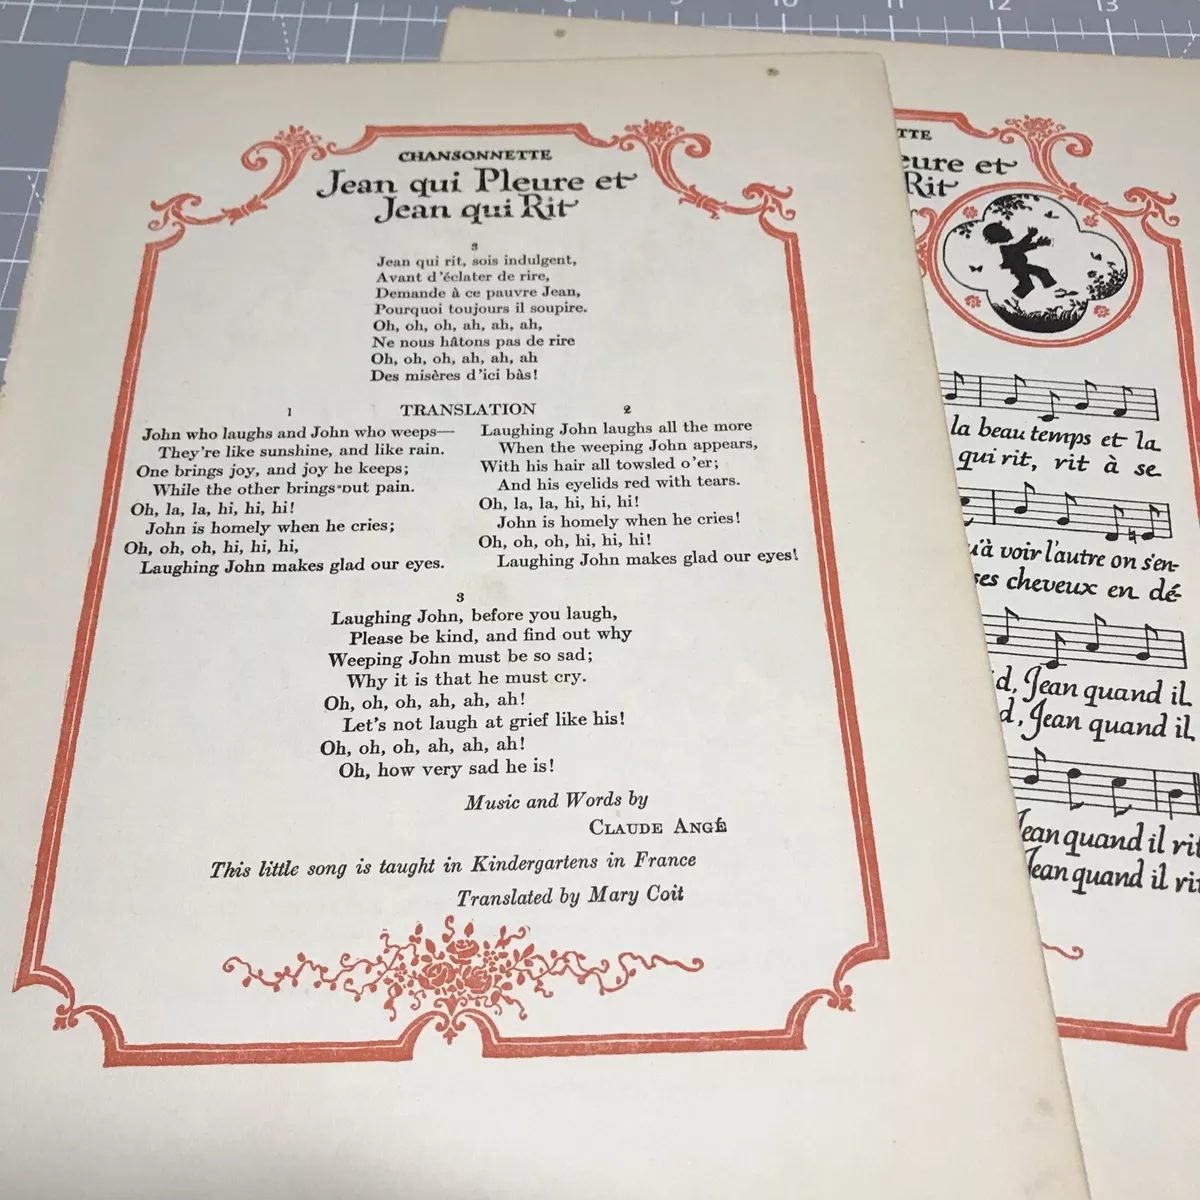 8 9 10 11 12 13
CHANSONNETTE
Jean qui Pleure et
Jean qui Rit
3
Jean qui rit, sois indulgent,
Avant d'éclater de rire,
Demande à ce pauvre Jean,
Pourquoi toujours il soupire.
Oh, oh, oh, ah, ah, ah,
Ne nous hâtons pas de rire
Oh, oh, oh, ah, ah, ah
Des misères d'ici bàs!
TRANSLATION
1
John who laughs and John who weeps—
They're like sunshine, and like rain.
One brings joy, and joy he keeps;
While the other brings out pain.
Oh, la, la, hi, hi, hi!
John is homely when he cries;
Oh, oh, oh, hi, hi, hi,
Laughing John makes glad our eyes.
2
Laughing John laughs all the more
When the weeping John appears,
With his hair all towsled o'er;
And his eyelids red with tears.
Oh, la, la, hi, hi, hi!
John is homely when he cries!
Oh, oh, oh, hi, hi, hi!
Laughing John makes glad our eyes!
3
Laughing John, before you laugh,
Please be kind, and find out why
Weeping John must be so sad;
Why it is that he must cry.
Oh, oh, oh, ah, ah, ah!
Let's not laugh at grief like his!
Oh, oh, oh, ah, ah, ah!
Oh, how very sad he is!
Music and Words by
CLAUDE ANGÉ
This little song is taught in Kindergartens in France
Translated by Mary Coit
TTE
eure et
Rit
la beau temps et la
qui rit, rit à se
u'à voir l'autre on s'en-
ses cheveux en dé-
d, Jean quand il
d, Jean quand il
Jean quand il rit
Jean quand il rit